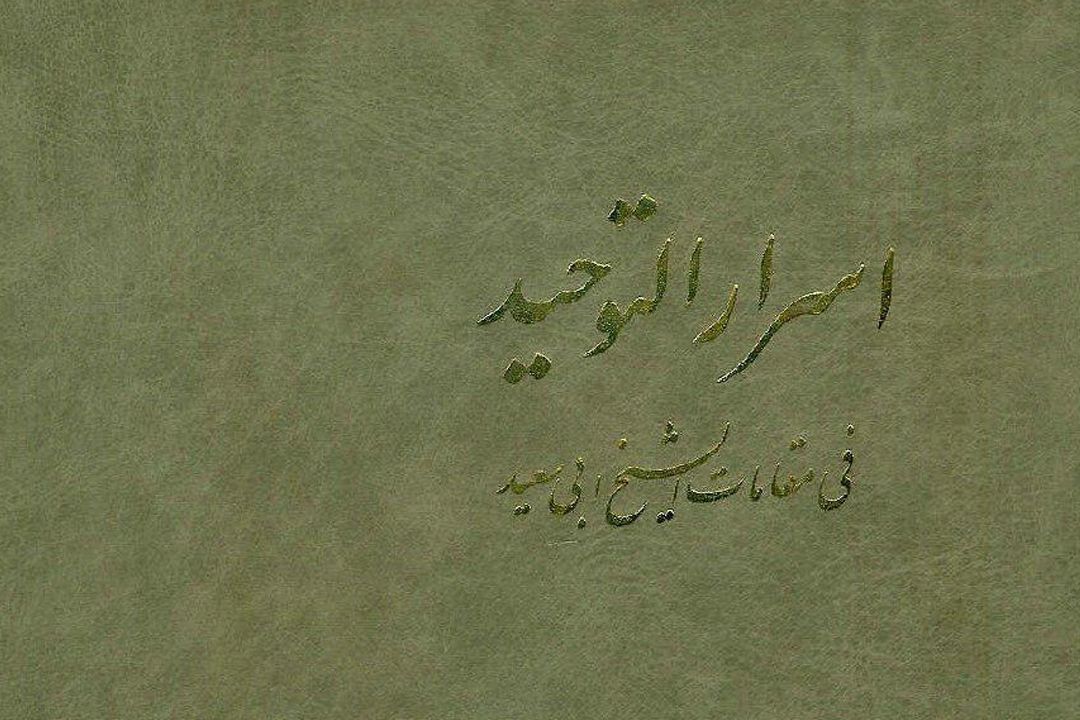 اسرار التوحید
فی مقامات الشیخ ابی سعید